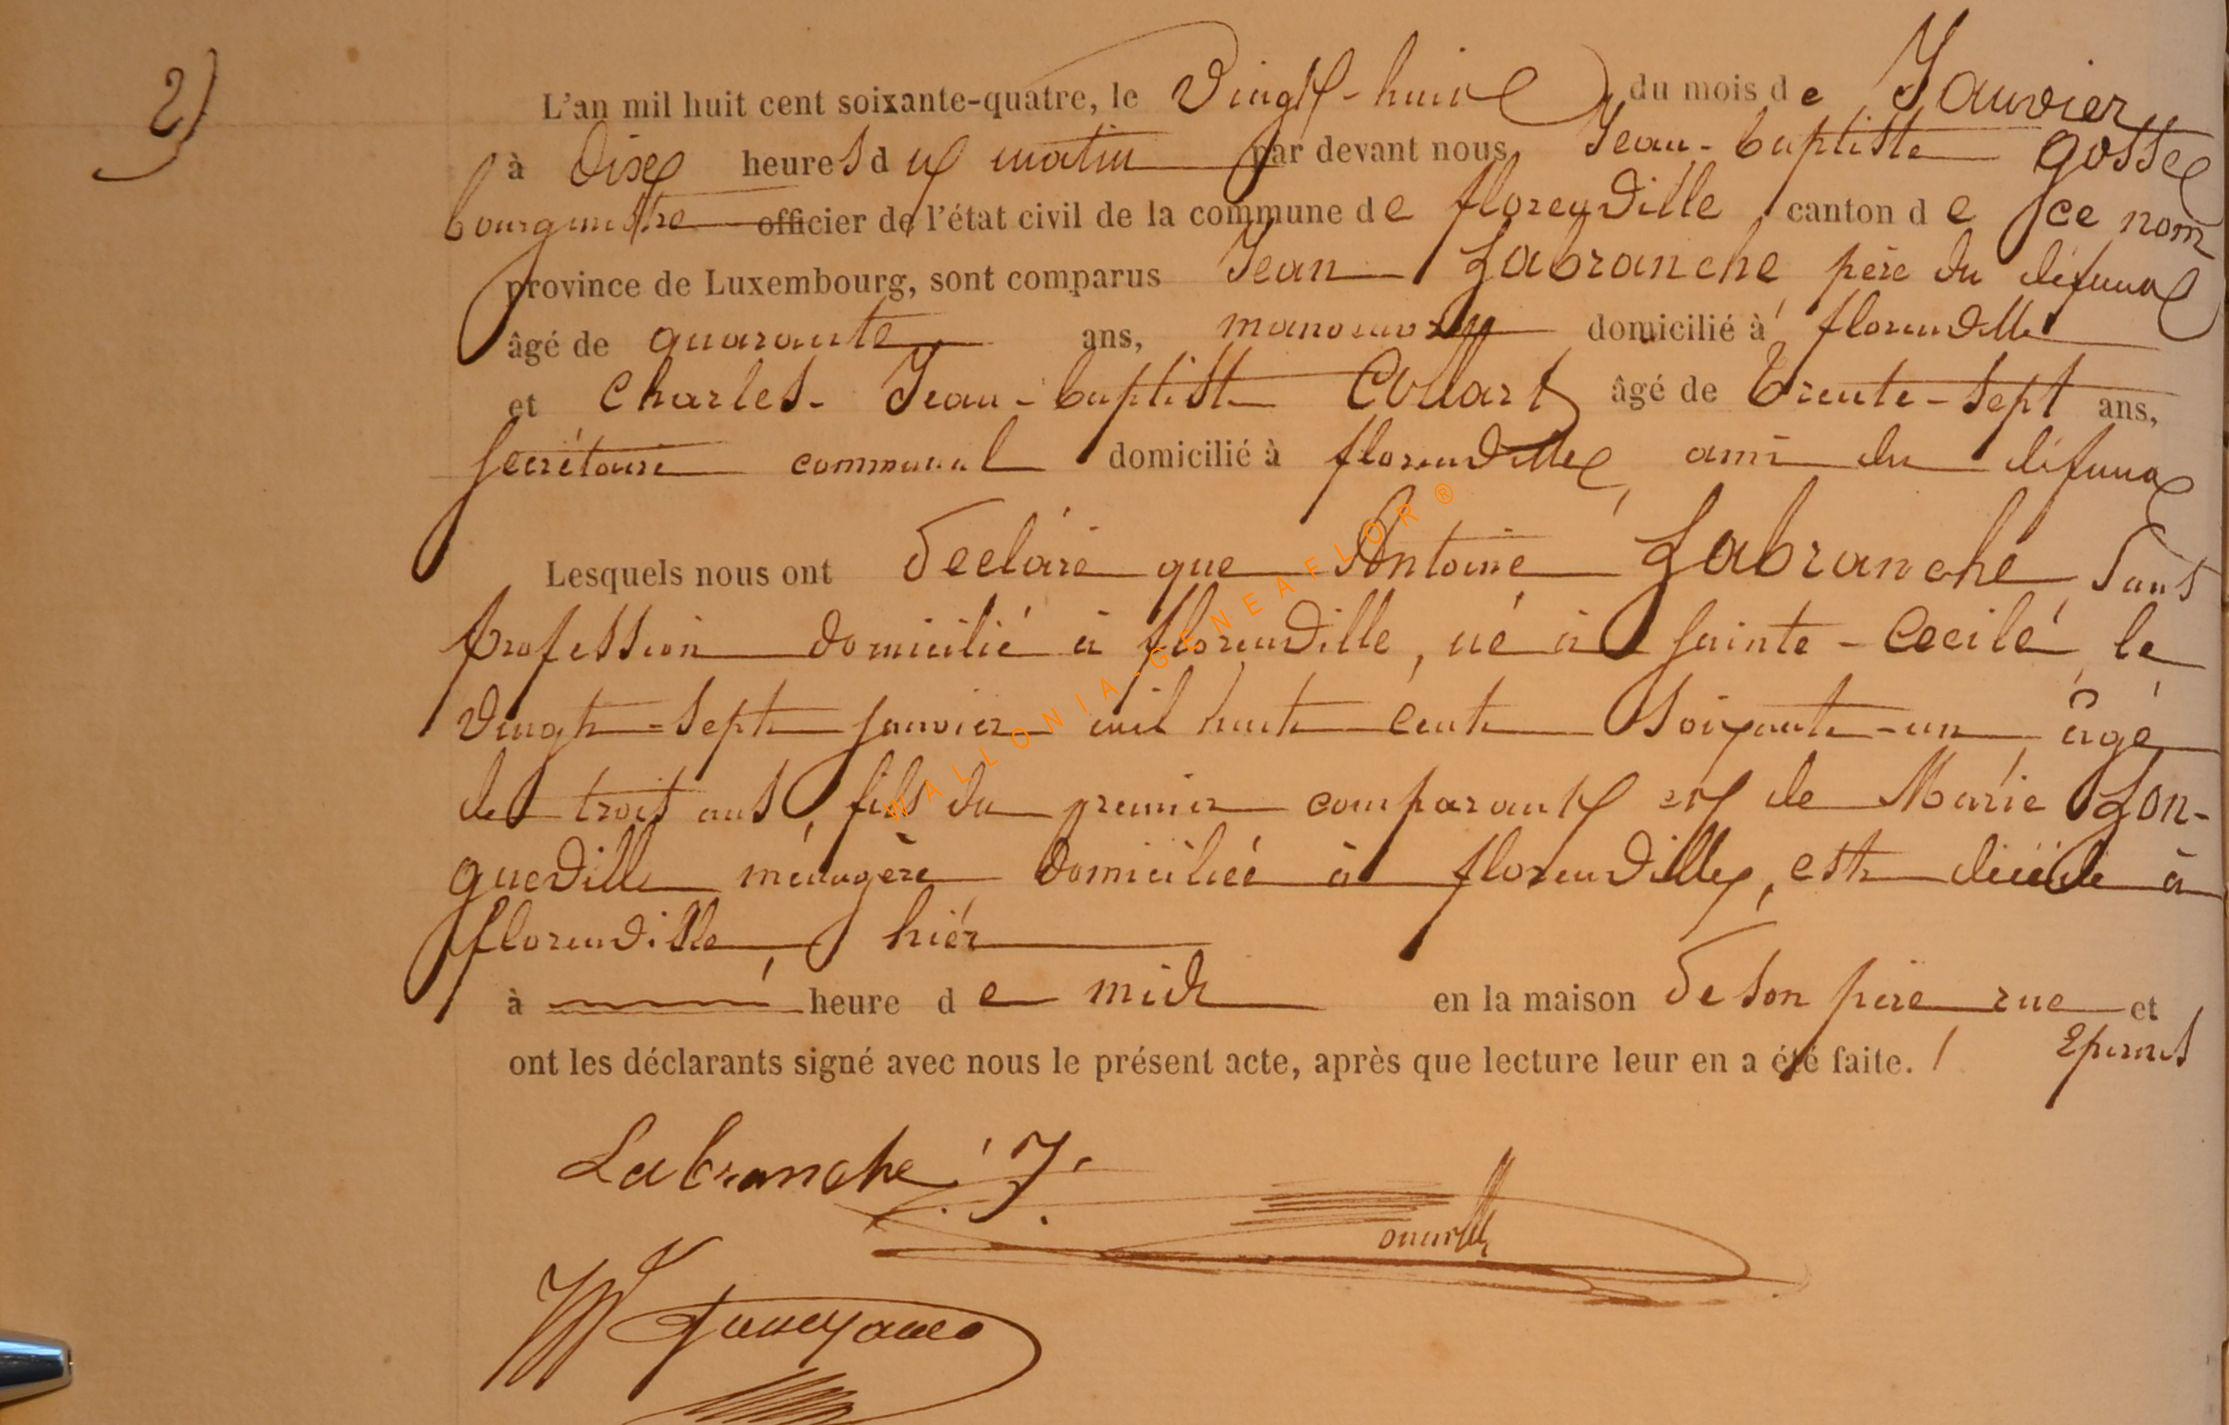 2)
L'an mil huit cent soixante-quatre, le Vingt-huit du mois de Janvier
à Dix heures du matin par devant nous Jean-baptiste Gosse
bourgmestre officier de l'état civil de la commune de florenville, canton de ce nom
province de Luxembourg, sont comparus Jean Labranche, père du défunt
âgé de quarante ans, manoeuvre domicilié à florenville
et Charles-Jean-baptiste Collart âgé de trente-sept ans,
Secrétaire communal domicilié à florenville, ami du défunt
Lesquels nous ont déclaré que Antoine Labranche, sans
profession domicilié à florenville, né à Sainte-Cecile, le
vingt-sept janvier mil huit cent soixante-un, âgé
de trois ans, fils du premier comparant et de Marie Lon-
gueville ménagère domiciliée à florenville, est décédé à
florenville, hier
à heure de midi en la maison de son père rue et
ont les déclarants signé avec nous le présent acte, après que lecture leur en a été faite. / Epernes
Labranche J.
WALLONIA-GENEAFLOR®